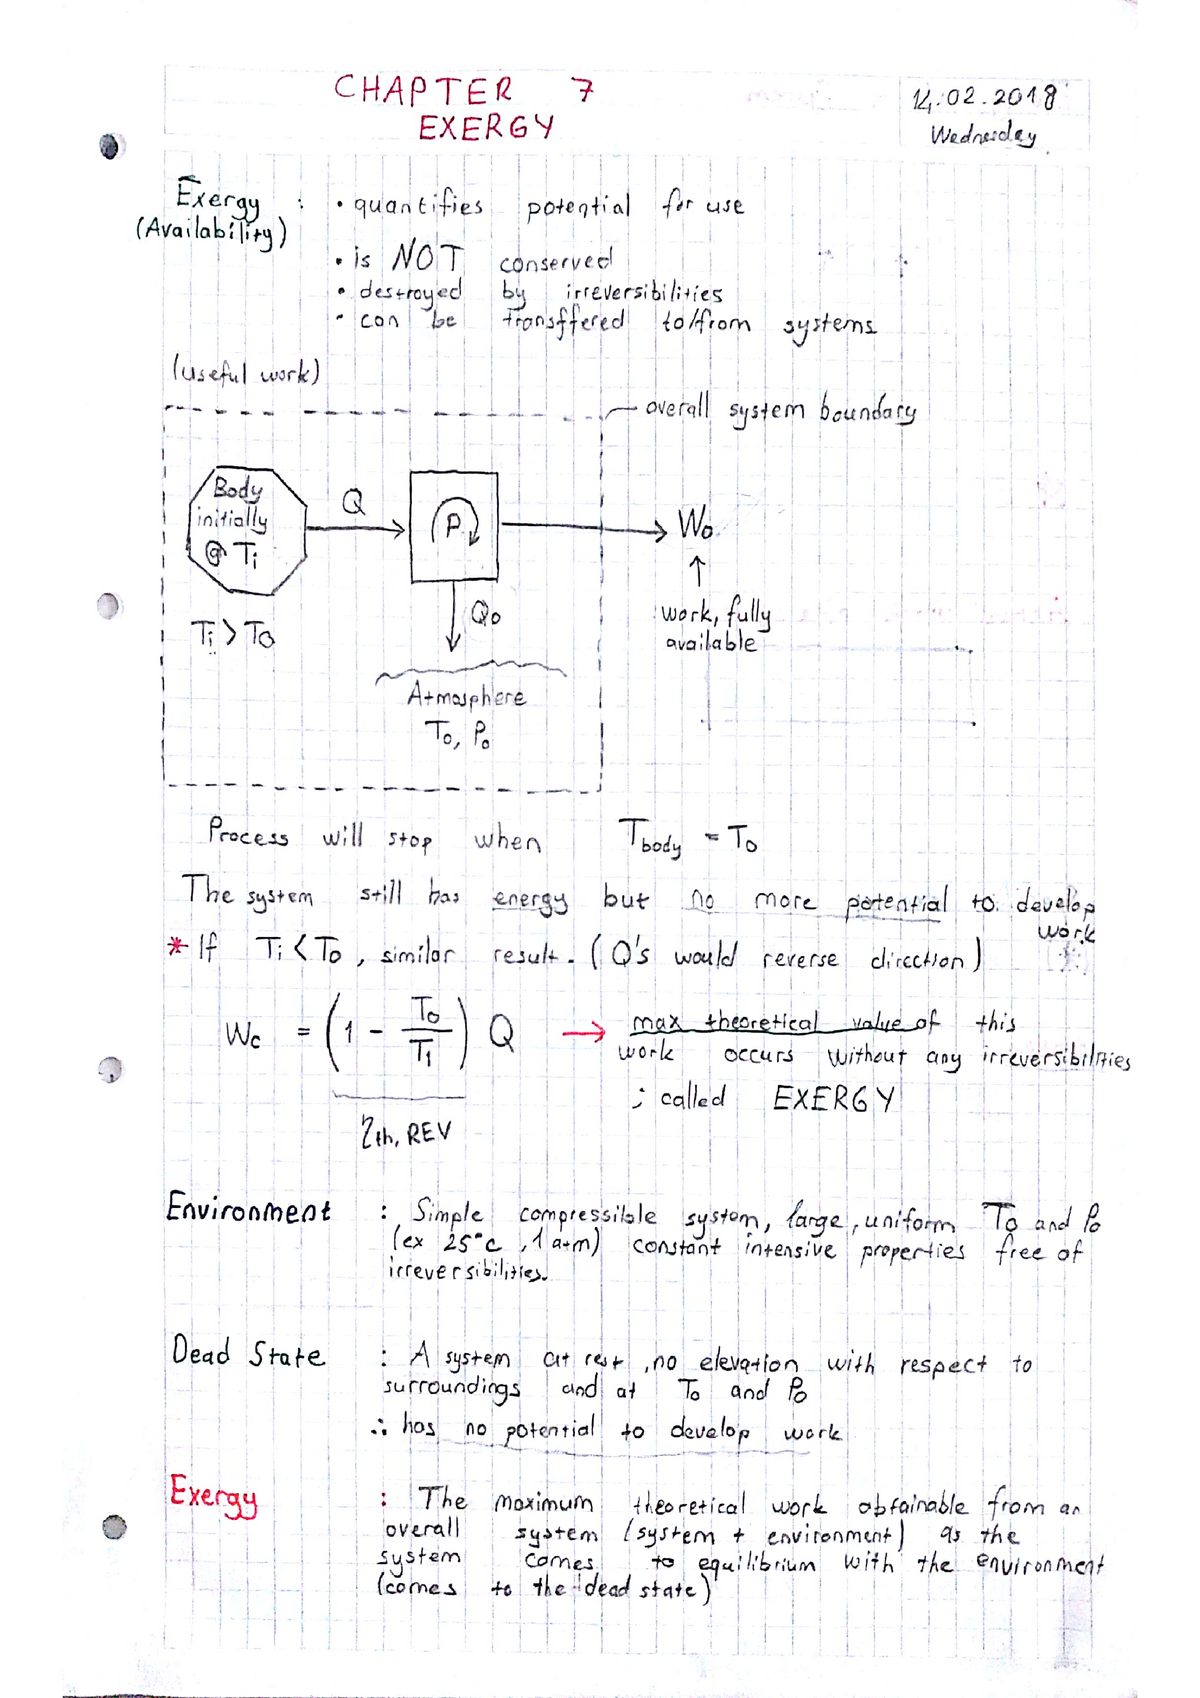 CHAPTER 7
EXERGY
14.02.2018
Wednesday
Exergy : • quantifies potential for use
(Availability)
• is NOT conserved
• destroyed by irreversibilities
• can be transffered to/from systems
(useful work)
overall system boundary
Body
initially
@ Ti
Q
P
Wo
Qo
↑
work, fully
available
Ti > To
Atmosphere
To, Po
Process will stop when Tbody = To
The system still has energy but no more potential to develop
work
* If Ti < To, similar result. (Q's would reverse direction)
Wc = (1 - To/Ti) Q → max theoretical value of this
work occurs without any irreversibilities
; called EXERGY
ηth, REV
Environment : Simple compressible system, large, uniform To and Po
(ex 25°C, 1 atm) constant intensive properties free of
irreversibilities.
Dead State : A system at rest, no elevation with respect to
surroundings and at To and Po
∴ has no potential to develop work
Exergy : The maximum theoretical work obtainable from an
overall system (system + environment) as the
system comes to equilibrium with the environment
(comes to the dead state)